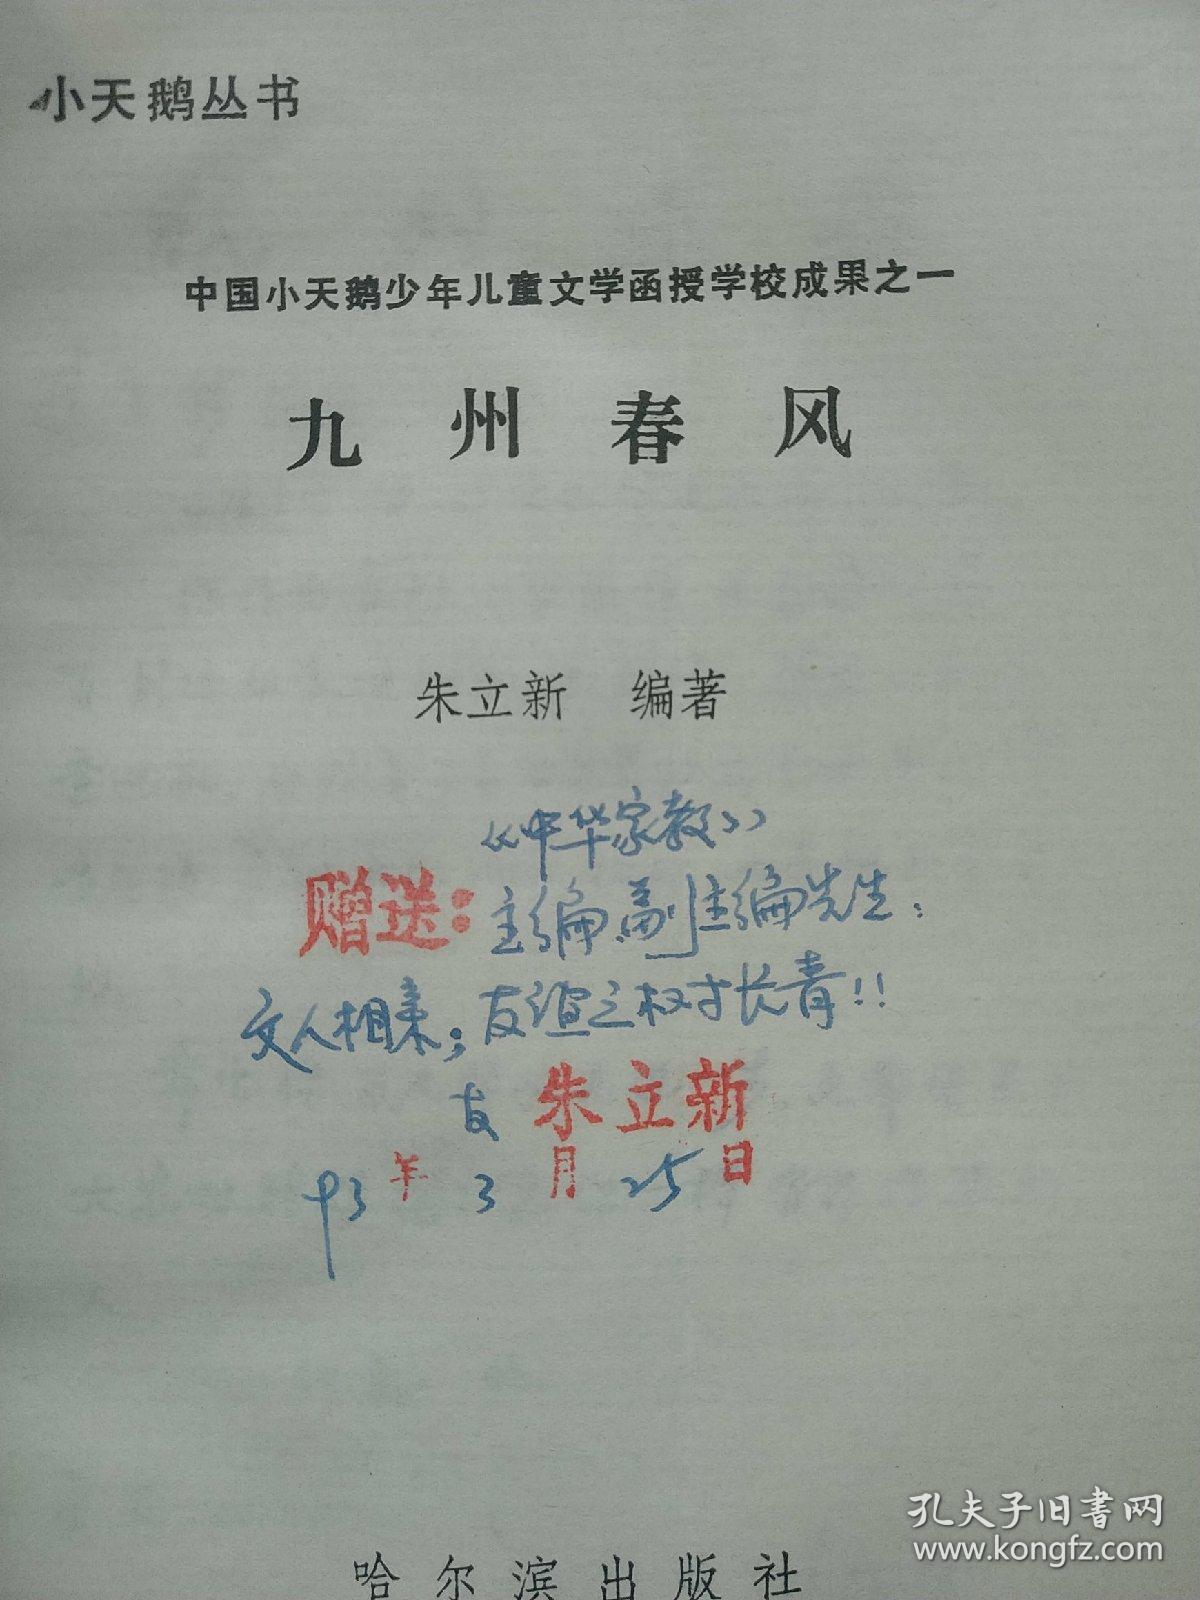 小天鹅丛书
中国小天鹅少年儿童文学函授学校成果之一
九州春风
朱立新 编著
《中华家教》
赠送：主编、副主编先生：
文人相亲；友谊之树长青!!
友 朱立新
93年3月25日
孔夫子旧书网
www.kongfz.com
哈尔滨出版社